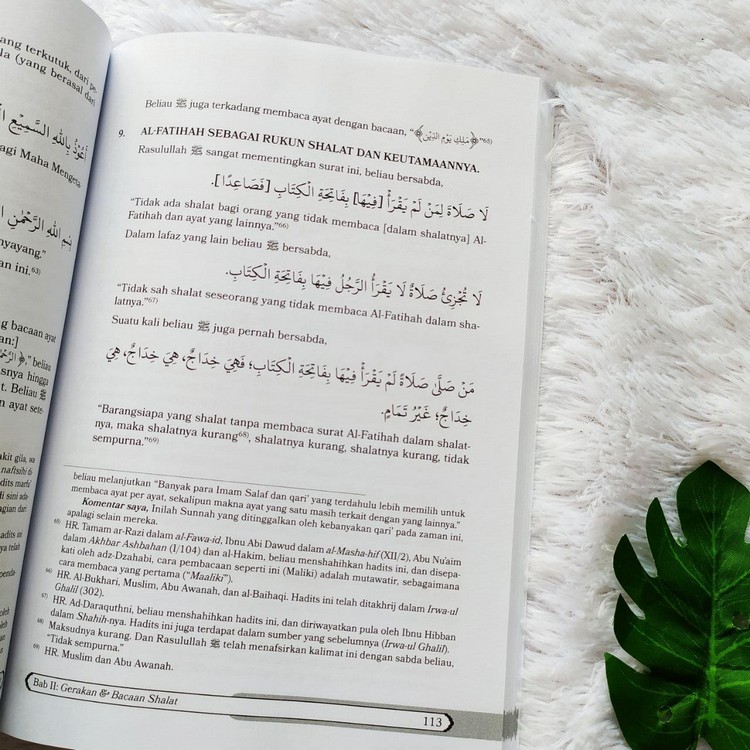 ang terkutuk, dari
la (yang berasal dari
أَعُوْذُ بِاللهِ السَّمِيْعِ
agi Maha Mengeta
بِسْمِ اللهِ الرَّحْمٰنِ
nyayang."
an ini.63)
g bacaan ayat
an:]
," beliau
snya hingga
t. Beliau ﷺ
n ayat sete-
akit gila, wa
naftsihi
dits marfu'
di sini ada
agian dari
hadits ini
nya telah
Beliau ﷺ juga terkadang membaca ayat dengan bacaan, "﴿مَلِكِ يَوْمِ الدِّيْنِ﴾"65)
9. AL-FATIHAH SEBAGAI RUKUN SHALAT DAN KEUTAMAANNYA.
Rasulullah ﷺ sangat mementingkan surat ini, beliau bersabda,
لَا صَلَاةَ لِمَنْ لَمْ يَقْرَأْ [فِيْهَا] بِفَاتِحَةِ الْكِتَابِ [فَصَاعِدًا].
"Tidak ada shalat bagi orang yang tidak membaca [dalam shalatnya] Al-
Fatihah dan ayat yang lainnya."66)
Dalam lafaz yang lain beliau ﷺ bersabda,
لَا تُجْزِئُ صَلَاةٌ لَا يَقْرَأُ الرَّجُلُ فِيْهَا بِفَاتِحَةِ الْكِتَابِ.
"Tidak sah shalat seseorang yang tidak membaca Al-Fatihah dalam sha-
latnya."67)
Suatu kali beliau ﷺ juga pernah bersabda,
مَنْ صَلَّى صَلَاةً لَمْ يَقْرَأْ فِيْهَا بِفَاتِحَةِ الْكِتَابِ؛ فَهِيَ خِدَاجٌ، هِيَ خِدَاجٌ، هِيَ
خِدَاجٌ؛ غَيْرُ تَمَامٍ.
"Barangsiapa yang shalat tanpa membaca surat Al-Fatihah dalam shalat-
nya, maka shalatnya kurang68), shalatnya kurang, shalatnya kurang, tidak
sempurna."69)
beliau melanjutkan "Banyak para Imam Salaf dan qari' yang terdahulu lebih memilih untuk
membaca ayat per ayat, sekalipun makna ayat yang satu masih terkait dengan yang lainnya."
Komentar saya, Inilah Sunnah yang ditinggalkan oleh kebanyakan qari' pada zaman ini,
apalagi selain mereka.
65) HR. Tamam ar-Razi dalam al-Fawa-id, Ibnu Abi Dawud dalam al-Masha-hif (XII/2), Abu Nu'aim
dalam Akhbar Ashbahan (I/104) dan al-Hakim, beliau menshahihkan hadits ini, dan disepa-
kati oleh adz-Dzahabi, cara pembacaan seperti ini (Maliki) adalah mutawatir, sebagaimana
cara membaca yang pertama ("Maaliki").
66) HR. Al-Bukhari, Muslim, Abu Awanah, dan al-Baihaqi. Hadits ini telah ditakhrij dalam Irwa-ul
Ghalil (302).
67) HR. Ad-Daraquthni, beliau menshahihkan hadits ini, dan diriwayatkan pula oleh Ibnu Hibban
dalam Shahih-nya. Hadits ini juga terdapat dalam sumber yang sebelumnya (Irwa-ul Ghalil).
68) Maksudnya kurang. Dan Rasulullah ﷺ telah menafsirkan kalimat ini dengan sabda beliau,
"Tidak sempurna."
69) HR. Muslim dan Abu Awanah.
Bab II: Gerakan & Bacaan Shalat
113